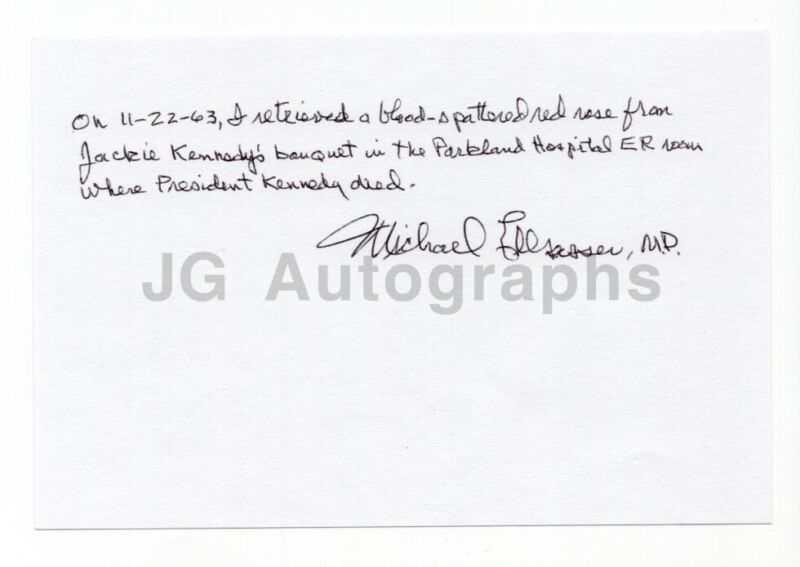 On 11-22-63, I retrieved a blood-spattered red rose from
Jackie Kennedy's bouquet in the Parkland Hospital ER room
where President Kennedy died.
Michael Ellsasser, M.D.
JG Autographs